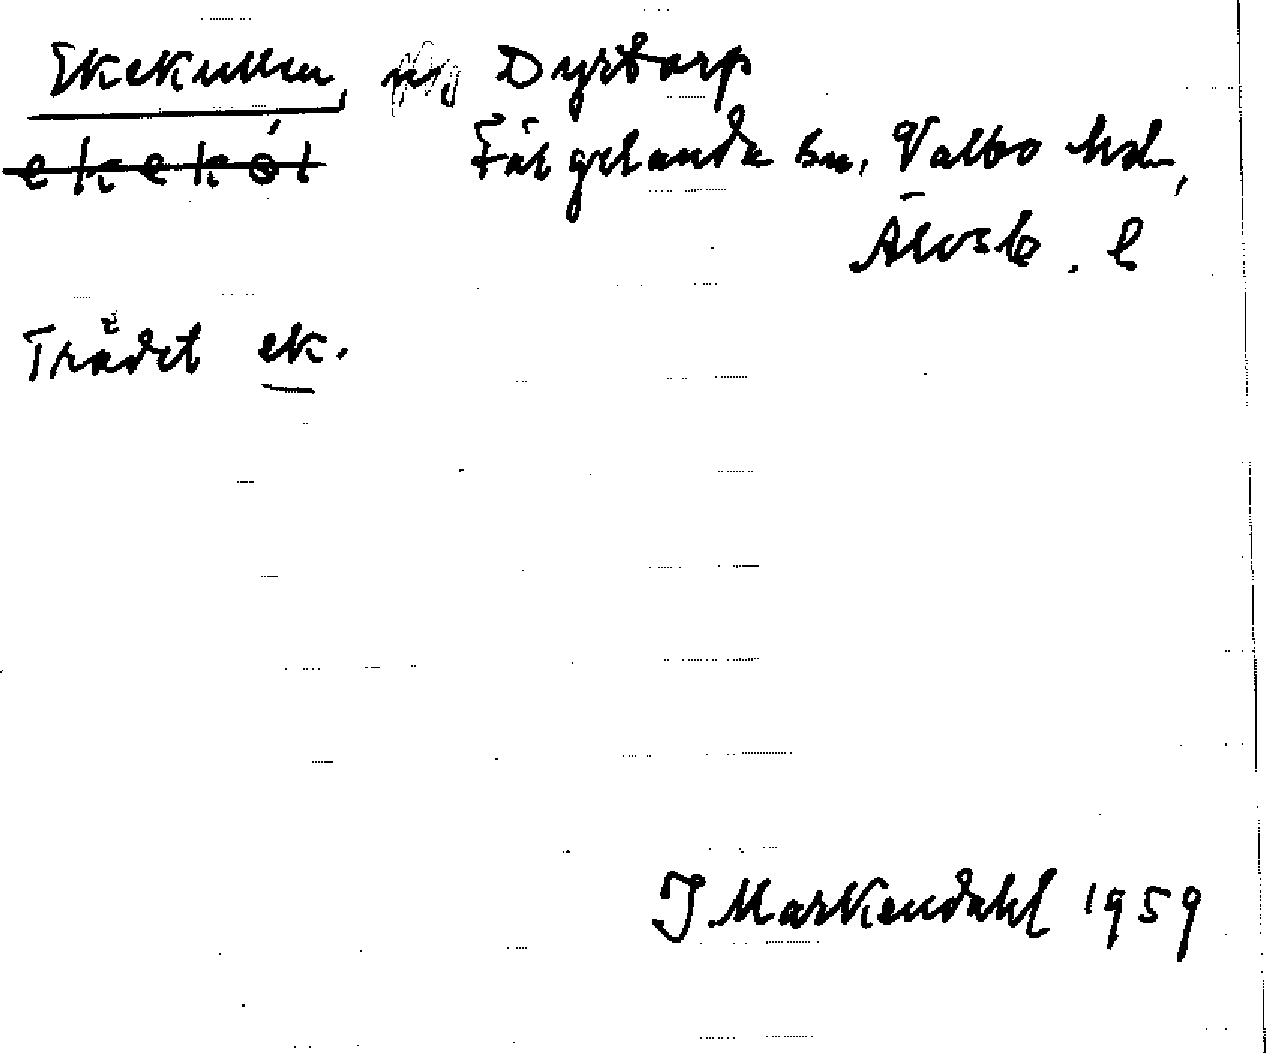 Ekekullen, Dyrtorp
ekekól Färgelanda sn, Valbo hd,
Älvsb. l
Trädet ek.
J Markendahl 1959